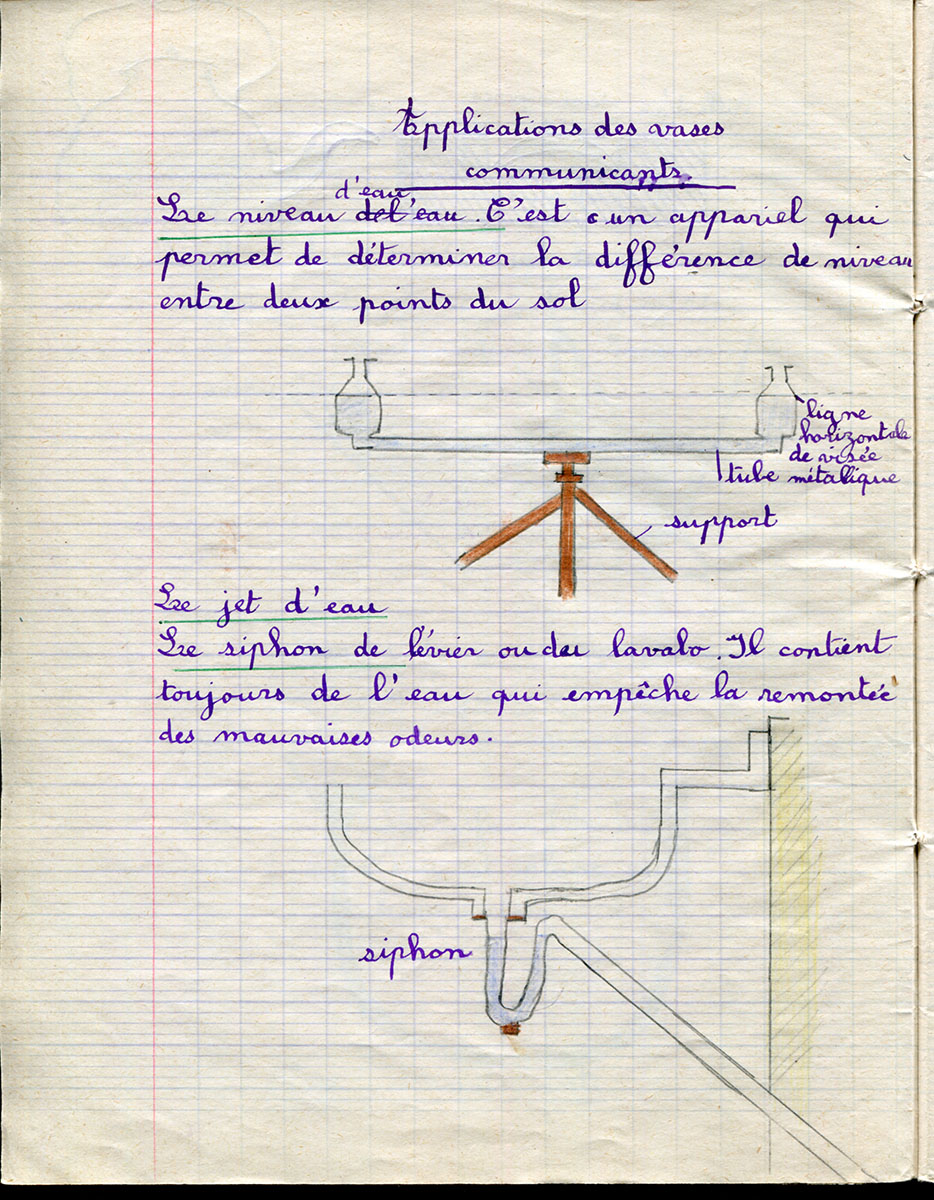 Applications des vases
communicants.
d'eau
Le niveau del'eau. C'est c un appariel qui
permet de déterminer la différence de niveau
entre deux points du sol
ligne
horizontale
de visée
tube métallique
support
Le jet d'eau
Le siphon de l'évier ou du lavabo. Il contient
toujours de l'eau qui empêche la remontée
des mauvaises odeurs.
siphon